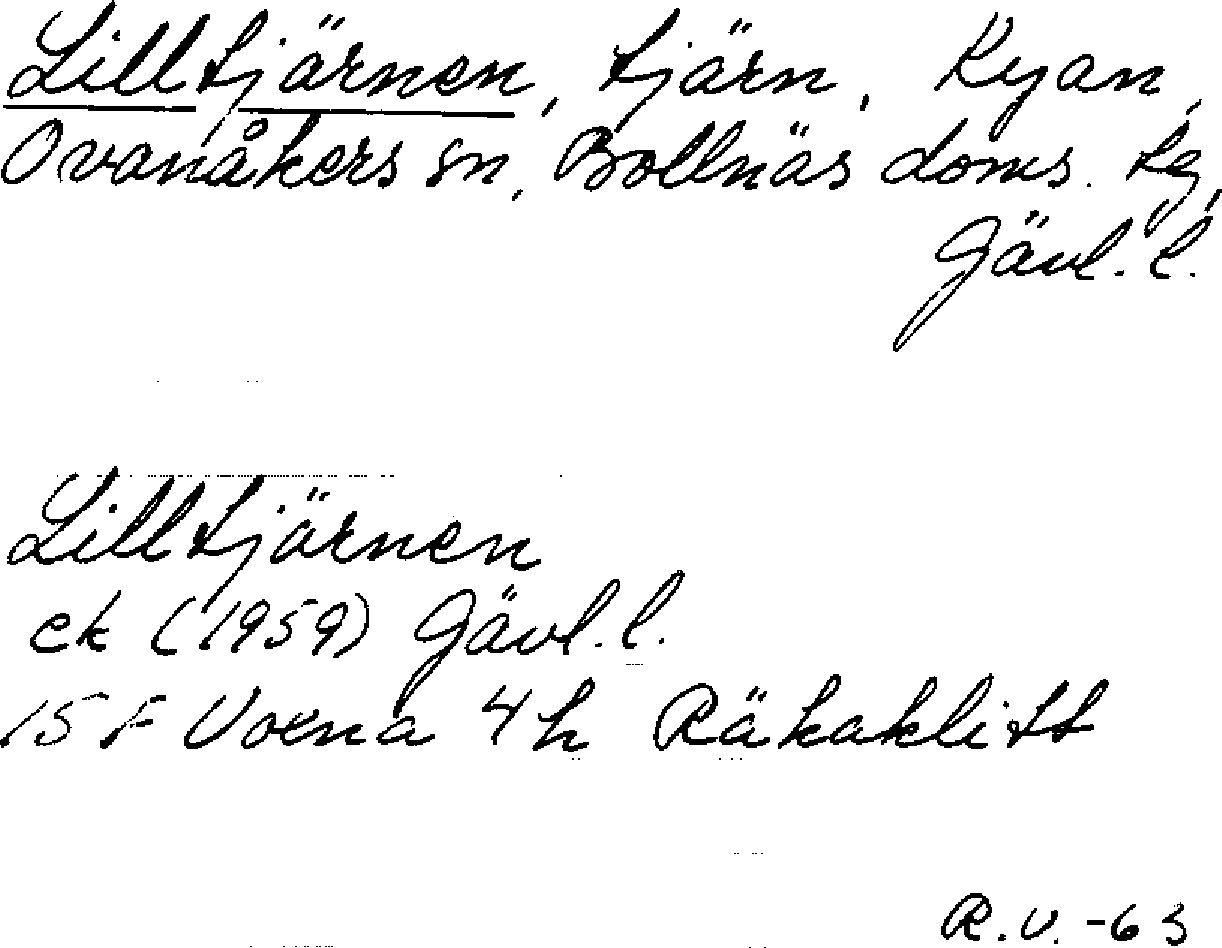 Lilltjärnen, tjärn, Ryan,
Ovanåkers sn, Bollnäs doms. tg,
Gävl. l.
Lilltjärnen
ek (1959) Gävl. l.
15 F Voxna 4 h Räkaklitt
R.V. -63